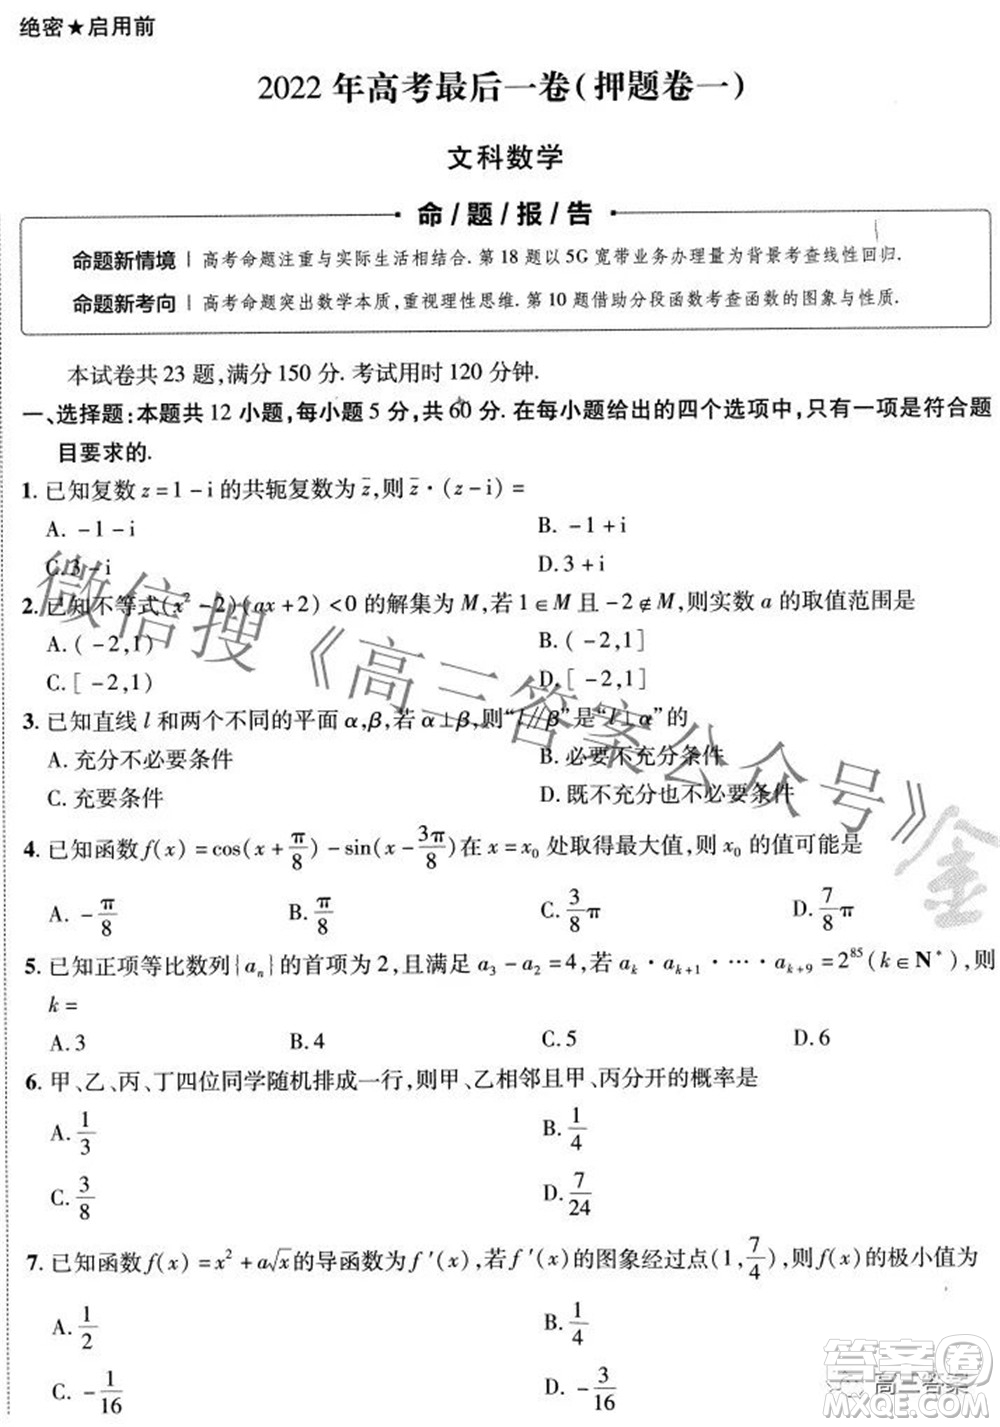 绝密★启用前
2022 年高考最后一卷(押题卷一)
文科数学
命/题/报/告
命题新情境 | 高考命题注重与实际生活相结合. 第 18 题以 5G 宽带业务办理量为背景考查线性回归.
命题新考向 | 高考命题突出数学本质,重视理性思维. 第 10 题借助分段函数考查函数的图象与性质.
本试卷共 23 题,满分 150 分. 考试用时 120 分钟.
一、选择题:本题共 12 小题,每小题 5 分,共 60 分. 在每小题给出的四个选项中,只有一项是符合题
目要求的.
1. 已知复数 z=1-i 的共轭复数为 z̄,则 z̄·(z-i)=
A. -1-i B. -1+i
C. 3-i D. 3+i
2. 已知不等式(x²-2)(ax+2)<0 的解集为 M,若 1∈M 且 -2∉M,则实数 a 的取值范围是
A. (-2,1) B. (-2,1]
C. [-2,1) D. [-2,1]
3. 已知直线 l 和两个不同的平面 α,β,若 α⊥β,则“l∥β”是“l⊥α”的
A. 充分不必要条件 B. 必要不充分条件
C. 充要条件 D. 既不充分也不必要条件
4. 已知函数 f(x)=cos(x+π/8)-sin(x-3π/8)在 x=x₀ 处取得最大值,则 x₀ 的值可能是
A. -π/8 B. π/8 C. 3/8π D. 7/8π
5. 已知正项等比数列{aₙ}的首项为 2,且满足 a₃-a₂=4,若 aₖ·aₖ₊₁·…·aₖ₊₉=2⁸⁵(k∈N*),则
k=
A. 3 B. 4 C. 5 D. 6
6. 甲、乙、丙、丁四位同学随机排成一行,则甲、乙相邻且甲、丙分开的概率是
A. 1/3 B. 1/4
C. 3/8 D. 7/24
7. 已知函数 f(x)=x²+a√x的导函数为 f′(x),若 f′(x)的图象经过点(1,7/4),则 f(x)的极小值为
A. 1/2 B. 1/4
C. -1/16 D. -3/16
微信搜《高三答案公众号》
高三答案
答案圈
MXQE.COM